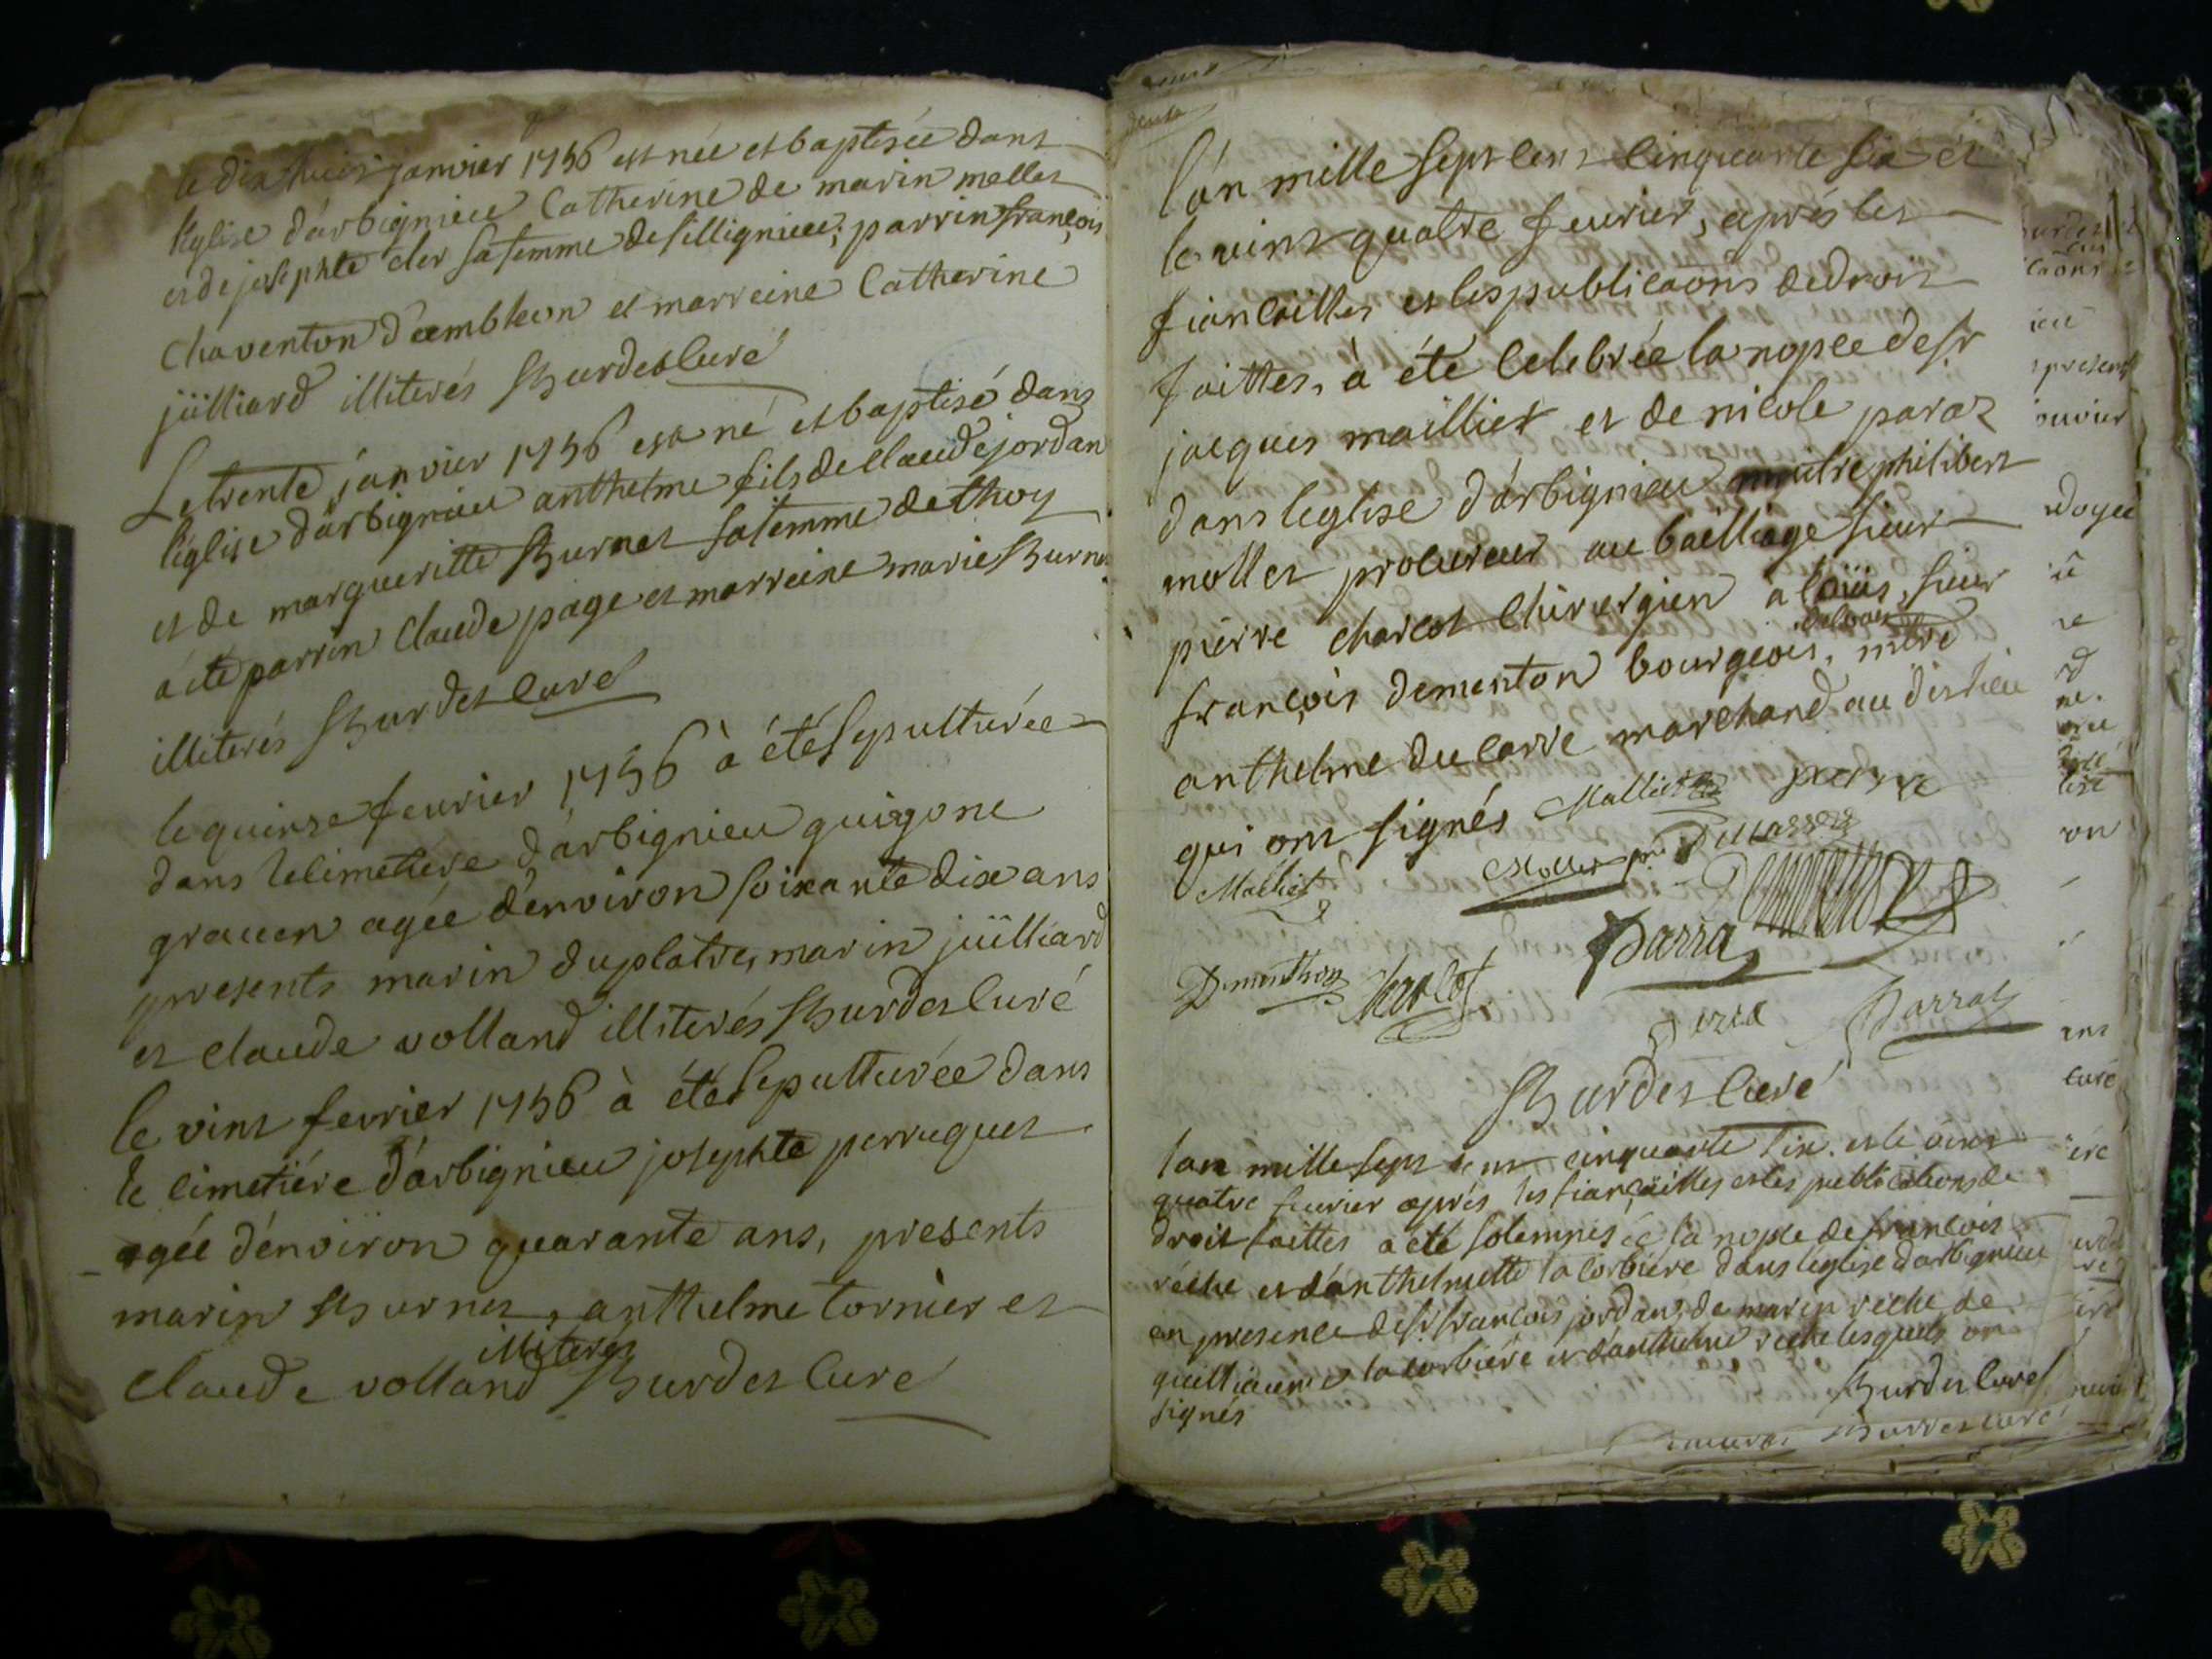 le dix huit janvier 1756 est née et baptisée dans
l'eglise d'arbignieu Catherine de marin mollet
et de josephte cler sa femme de sillignieu; parrin françois
chaventon d'ambleon et marreine Catherine
jüilliard illiterés Burdet Curé
Le trente janvier 1756 est né et baptisé dans
l'église d'arbignieu anthelme fils de Claude jordan
et de margueritte Burnet sa femme de thoy
a été parrin Claude page et marreine marie Burnet
illiterés Burdet Curé
le quinze fevrier 1756 à été sepulturée
dans le cimetière d'arbignieu guigone
graven agée d'environ soixante dix ans
presents marin duplatre, marin jüilliard
et claude volland illiterés Burdet Curé
le vint fevrier 1756 à été sepulturée dans
le cimetière d'arbignieu josephte perruquet
agée d'environ quarante ans, presents
marin Burnet, anthelme tornier et
illiterés
claude volland Burdet Curé
l'an mille sept cent cinquante six et
le vint quatre fevrier, aprés les
fiancailles et les publicaons de droit
faittes, à été celebrée la nopce de sr
jacques mailliet et de nicole paraz
dans l'eglise d'arbignieu maitre philibert
mollet procureur au bailliage sieur
pierre charcot chirurgien a loüis, sieur
françois dementon bourgeois, mtre
anthelme ducarre marchand au dit lieu
qui ont signés Malliet
Molliet
Mailiet
Dementhon Charcot Parra
Parraz
Burdet Curé
l'an mille sept cent cinquante six. et le vint
quatre fevrier aprés les fiançailles et les publications de
droit faittes a été solemnisée la nopce de françois
réche et d'anthelmette la corbiére dans l'eglise d'arbignieu
en presence de sr françois jordan, de marin reche, de
guilliaume la corbiére et d'anthelme reche lesquels on
signés
Burdet Curé
Burdet curé